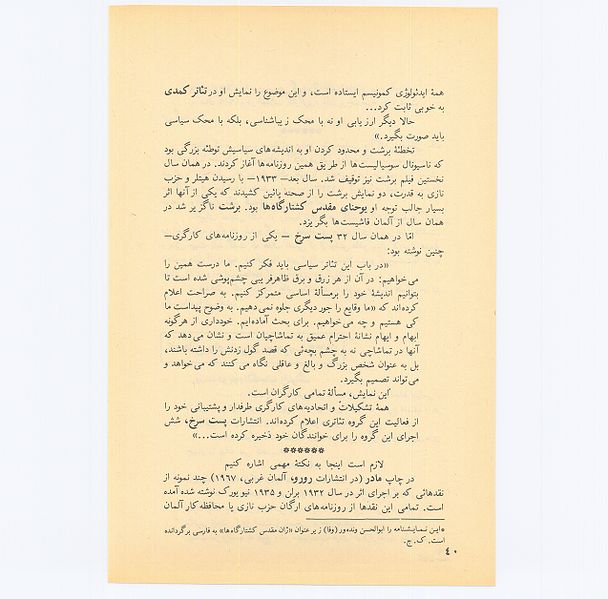 همهٔ ایدئولوژی کمونیسم ایستاده است، و این موضوع را نمایش او در تئاتر کمدی
به خوبی ثابت کرد...
حالا دیگر ارزیابی او نه با محک زیباشناسی، بلکه با محک سیاسی
باید صورت بگیرد.»
تخطئهٔ برشت و محدود کردن او به اندیشه‌های سیاسیش توطئه بزرگی بود
که ناسیونال سوسیالیست‌ها از طریق همین روزنامه‌ها آغاز کردند. در همان سال
نخستین فیلم برشت نیز توقیف شد. سال بعد— ۱۹۳۳— با رسیدن هیتلر و حزب
نازی به قدرت، دو نمایش برشت را از صحنه پائین کشیدند که یکی از آنها اثر
بسیار جالب توجه او یوحنای مقدس کشتارگاه‌ها بود. برشت ناگزیر شد در
همان سال از آلمان فاشیست‌ها بگریزد.
امّا در همان سال ۳۲ پست سرخ — یکی از روزنامه‌های کارگری—
چنین نوشته بود:
«در باب این تئاتر سیاسی باید فکر کنیم. ما درست همین را
می‌خواهیم: در آن از هر زرق و برق ظاهرفریبی چشم‌پوشی شده است تا
بتوانیم اندیشهٔ خود را برمسألهٔ اساسی متمرکز کنیم. به صراحت اعلام
کرده‌اند که «ما وقایع را جور دیگری جلوه نمی‌دهیم. به وضوح پیداست ما
کی هستیم و چه می‌خواهیم. برای بحث آماده‌ایم. خودداری از هرگونه
ابهام و ایهام نشانهٔ احترام عمیق به تماشاچیان است و نشان می‌دهد که
آنها در تماشاچی نه به چشم بچه‌ئی که قصد گول زدنش را داشته باشند،
بل به عنوان شخص بزرگ و بالغ و عاقلی نگاه می‌کنند که می‌خواهد و
می‌تواند تصمیم بگیرد.
این نمایش، مسألهٔ تمامی کارگران است.
همهٔ تشکیلات و اتحادیه‌های کارگری طرفدار و پشتیبانی خود را
از فعالیت این گروه تئاتری اعلام کرده‌اند. انتشارات پست سرخ، شش
اجرای این گروه را برای خوانندگان خود ذخیره کرده است...»
******
لازم است اینجا به نکتهٔ مهمی اشاره کنیم
در چاپ مادر (در انتشارات رورو، آلمان غربی، ۱۹۶۷) چند نمونه از
نقدهائی که بر اجرای اثر در سال ۱۹۳۲ برلن و ۱۹۳۵ نیویورک نوشته شده آمده
است. تمامی این نقدها از روزنامه‌های ارگان حزب نازی یا محافظه‌کار آلمان
*این نمایشنامه را ابوالحسن ونده‌ور (وفا) زیر عنوان «ژان مقدس کشتارگاه‌ها» به فارسی برگردانده
است. ک. ج.
۴۰